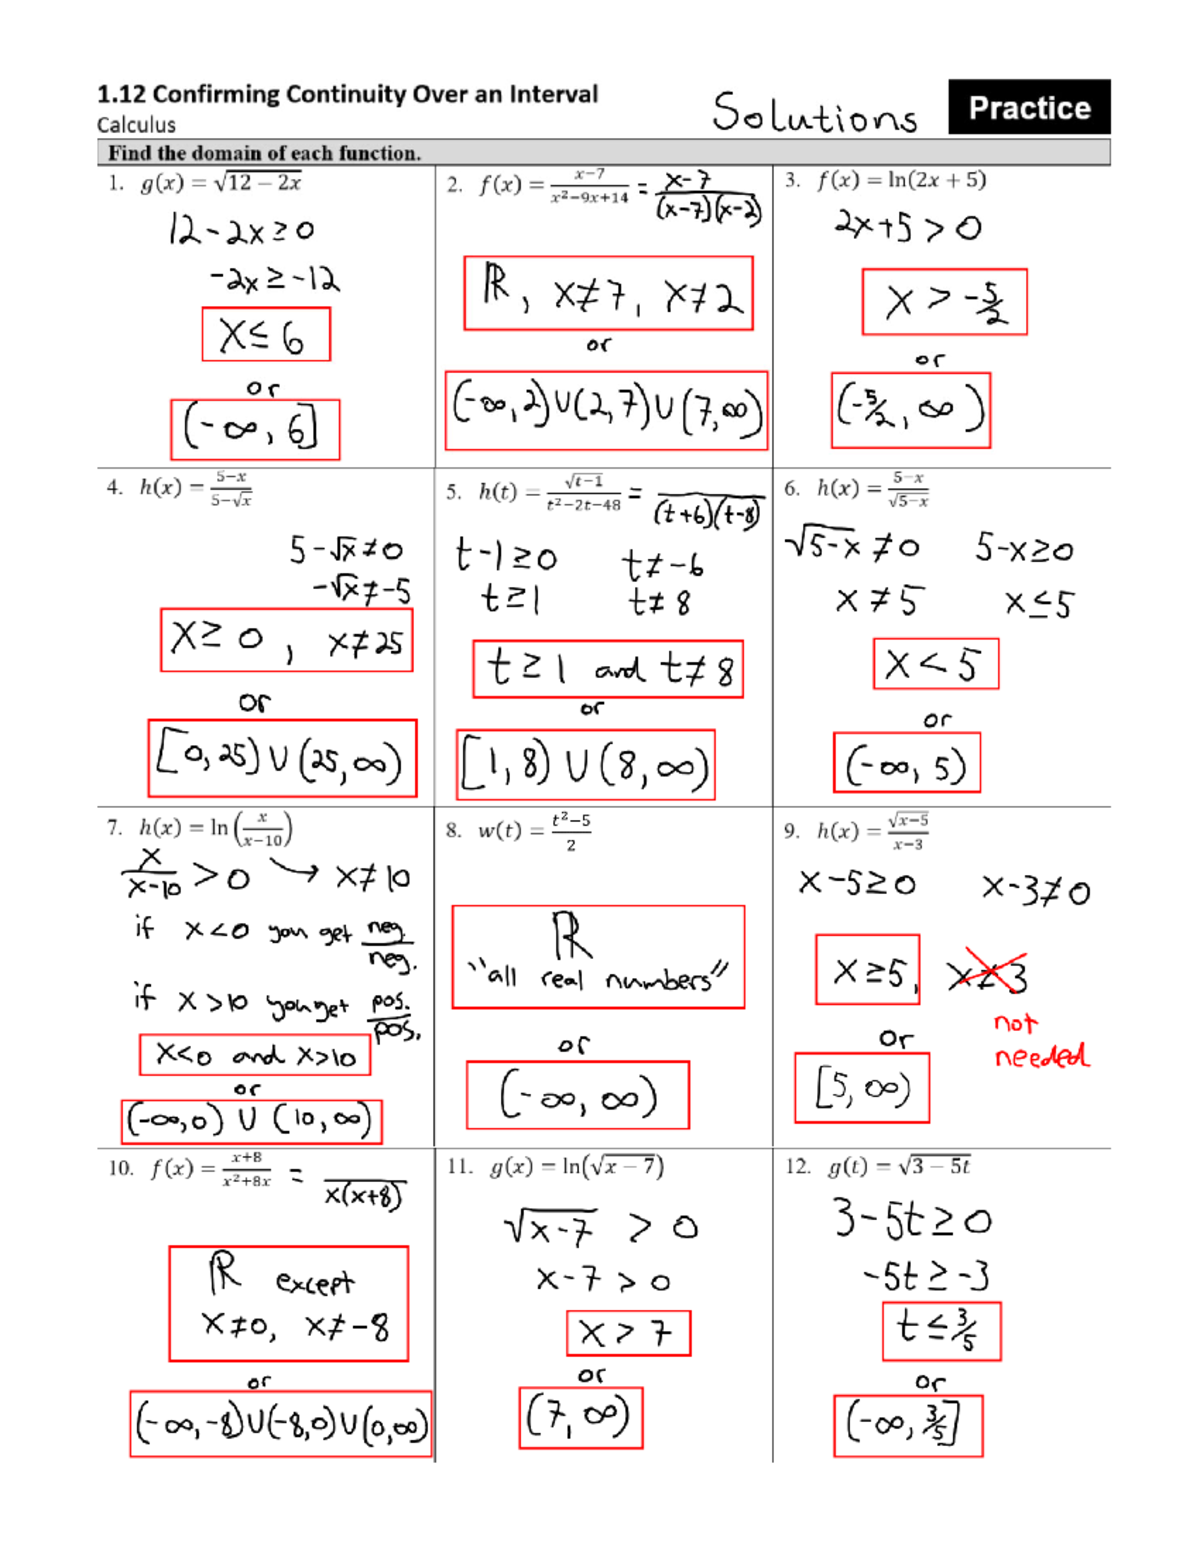 1.12 Confirming Continuity Over an Interval
Calculus
Solutions
Practice
Find the domain of each function.
1. g(x) = √(12 − 2x)
12 - 2x ≥ 0
-2x ≥ -12
x ≤ 6
or
(-∞, 6]
2. f(x) = (x−7)/(x²−9x+14) = (x-7)/((x-7)(x-2))
ℝ, x≠7, x≠2
or
(-∞,2)∪(2,7)∪(7,∞)
3. f(x) = ln(2x + 5)
2x+5 > 0
x > -5/2
or
(-5/2, ∞)
4. h(x) = (5−x)/(5−√x)
5-√x ≠ 0
-√x ≠ -5
x ≥ 0, x≠25
or
[0,25)∪(25,∞)
5. h(t) = √(t−1)/(t²−2t−48) = /((t+6)(t-8))
t-1 ≥ 0 t≠-6
t ≥ 1 t≠8
t ≥ 1 and t≠8
or
[1,8)∪(8,∞)
6. h(x) = (5−x)/√(5−x)
√(5-x) ≠ 0 5-x ≥ 0
x ≠ 5 x ≤ 5
x < 5
or
(-∞, 5)
7. h(x) = ln(x/(x−10))
x/(x-10) > 0 → x≠10
if x<0 you get neg./neg.
if x>10 you get pos./pos.
x<0 and x>10
or
(-∞,0) ∪ (10,∞)
8. w(t) = (t²−5)/2
ℝ
"all real numbers"
or
(-∞, ∞)
9. h(x) = √(x−5)/(x−3)
x-5 ≥ 0 x-3≠0
x ≥ 5, x≠3
not
needed
or
[5, ∞)
10. f(x) = (x+8)/(x²+8x) = /(x(x+8))
ℝ except
x≠0, x≠-8
or
(-∞,-8)∪(-8,0)∪(0,∞)
11. g(x) = ln(√(x − 7))
√(x-7) > 0
x-7 > 0
x > 7
or
(7, ∞)
12. g(t) = √(3 − 5t)
3-5t ≥ 0
-5t ≥ -3
t ≤ 3/5
or
(-∞, 3/5]